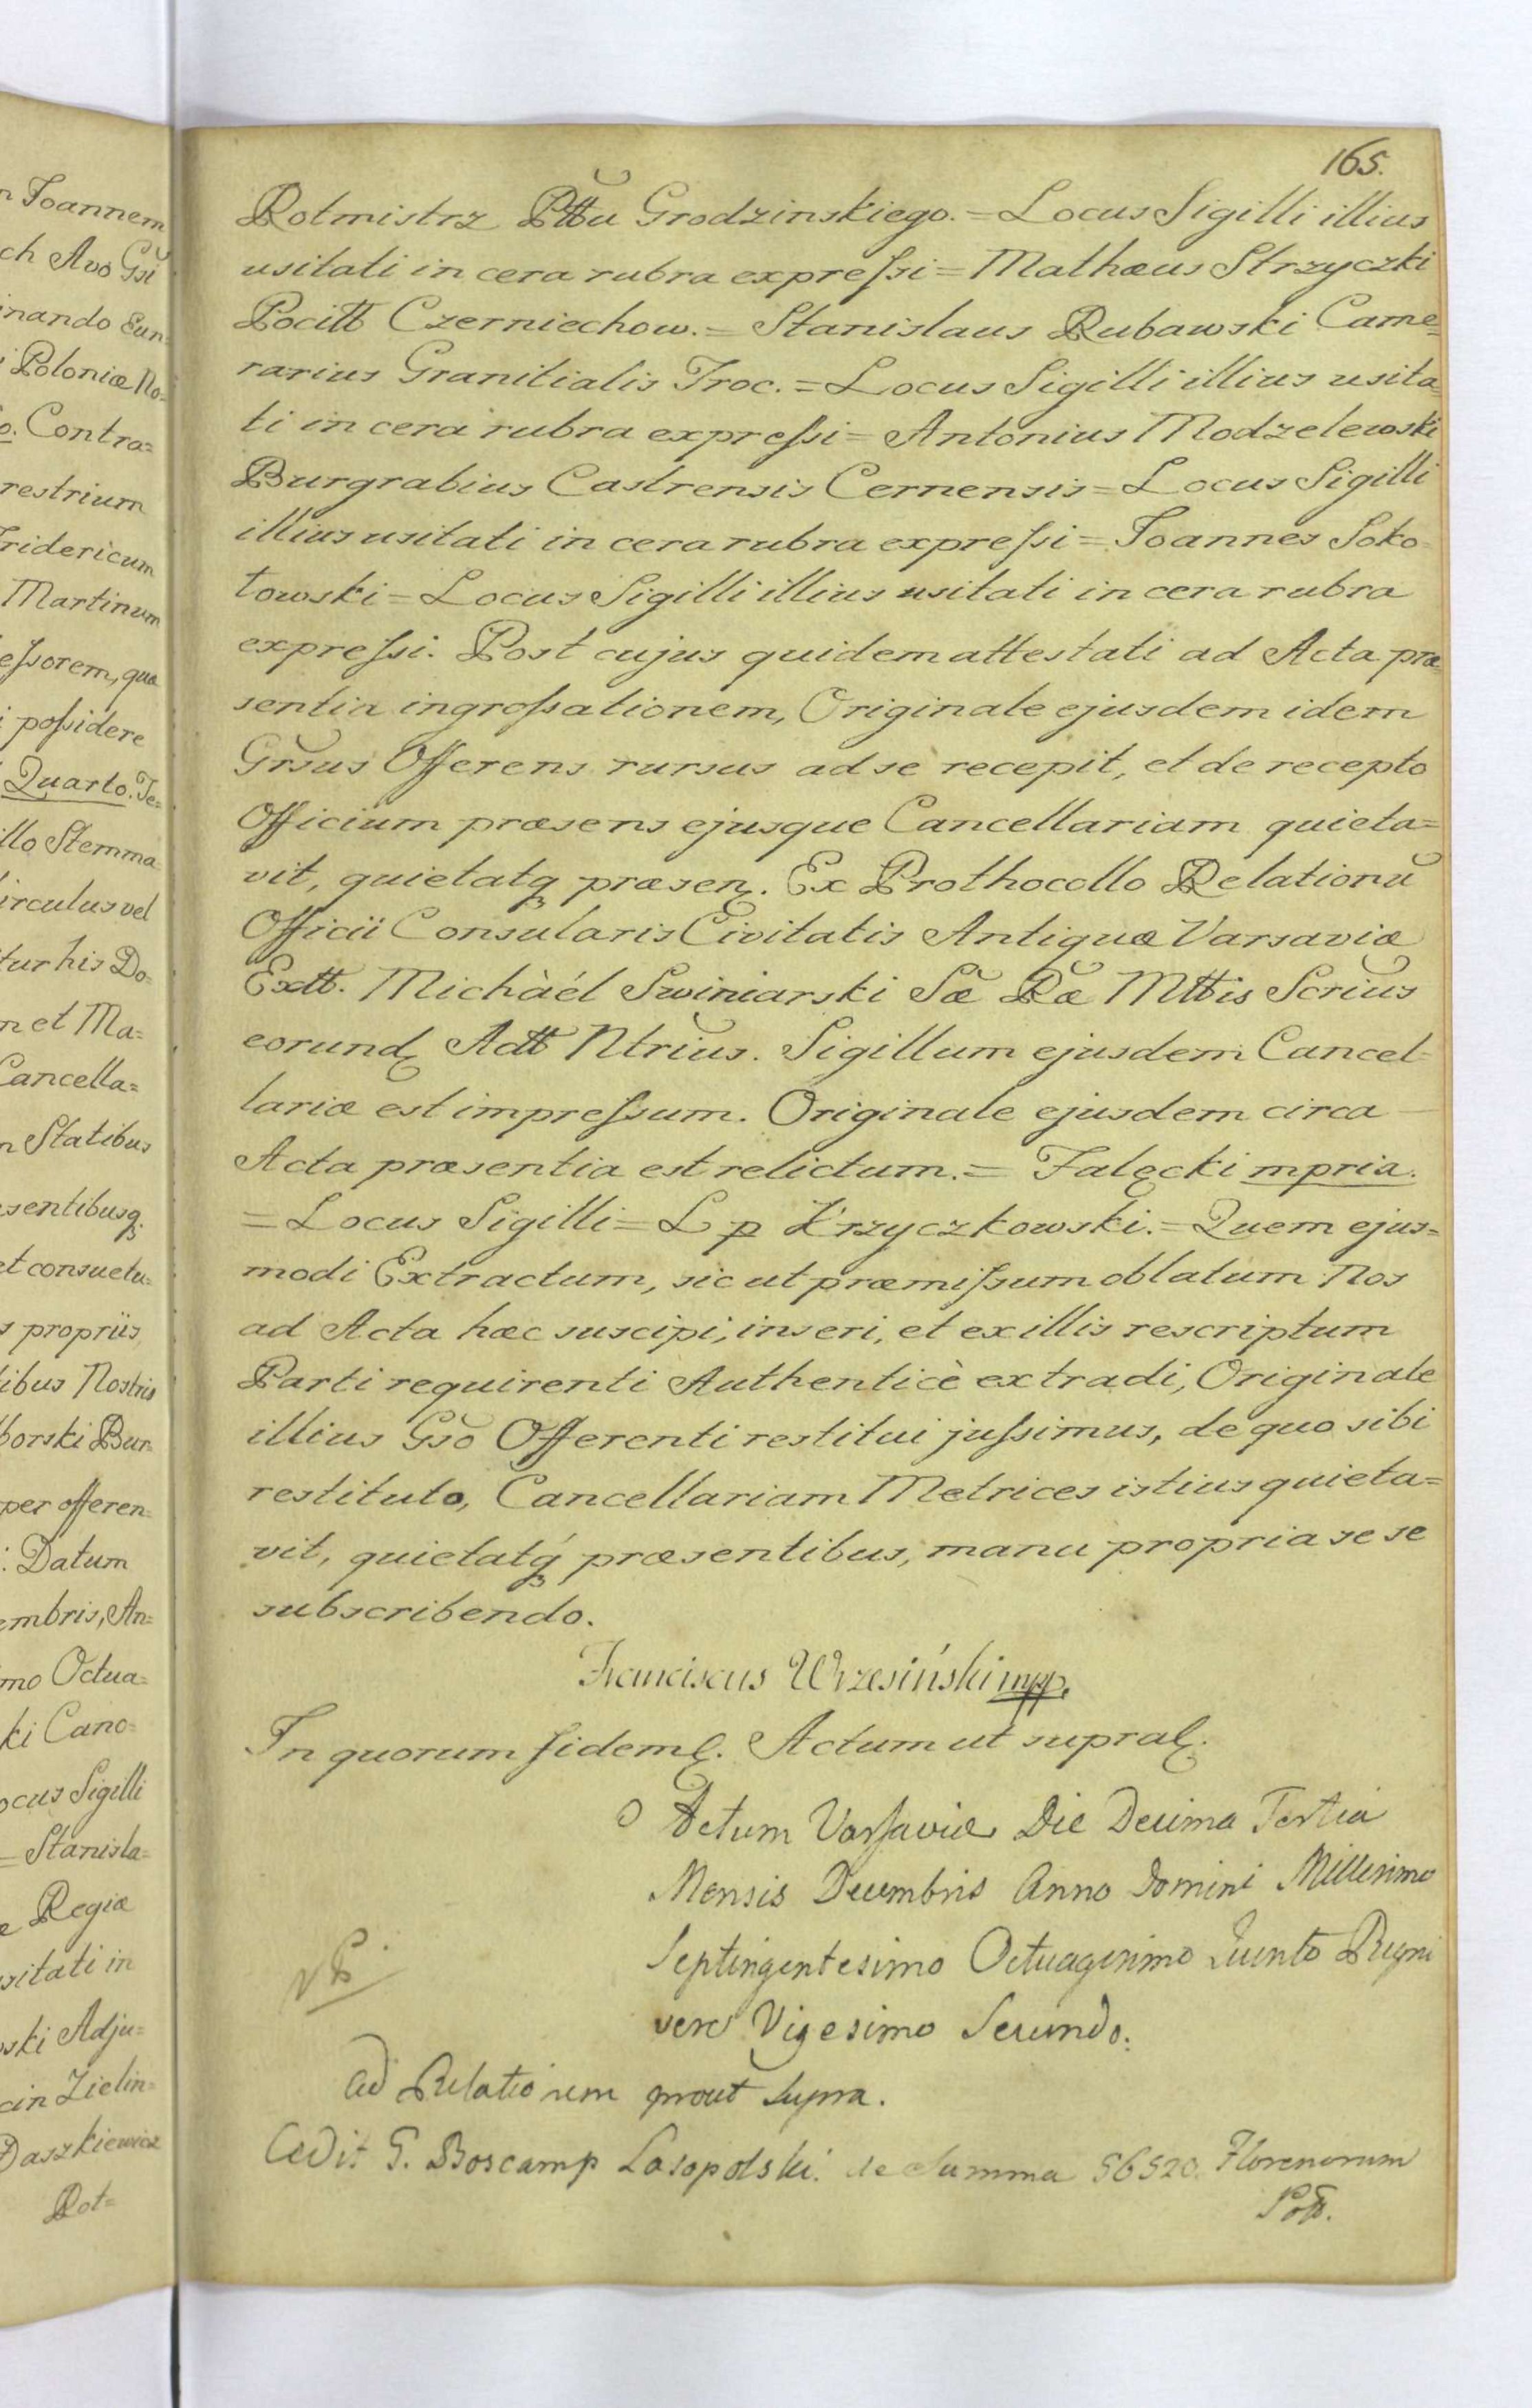 165.
Rotmistrz Pttu Grodzinskiego. = Locus Sigilli illius
usitati in cera rubra expreſsi = Mathæus Strzyczki
Pocitt Czerniechow. = Stanislaus Rubawski Came=
rarius Granitialis Troc. = Locus Sigilli illius usita=
ti in cera rubra expreſsi = Antonius Modzelewski
Burgrabius Castrensis Cernensis = Locus Sigilli
illius usitati in cera rubra expreſsi = Joannes Soko=
łowski = Locus Sigilli illius usitati in cera rubra
expreſsi. Post cujus quidem attestati ad Acta præ
sentia ingroſsationem, Originale ejusdem idem
Grsus Offerens rursus ad se recepit, et de recepto
Officium præsens ejusque Cancellariam quieta=
vit, quietatq præsen. Ex Prothocollo Relationū
Officii Consularis Civitatis Antiquæ Varsaviæ
Extt. Michàél Swiniarski Sæ Ræ Mttis Scrius
eorund Actt Ntrius. Sigillum ejusdem Cancel=
lariæ est impreſsum. Originale ejusdem circa
Acta præsentia est relictum. = Falęcki mpria.
= Locus Sigilli = L p Krzyczkowski. = Quem ejus=
modi Extractum, sic ut præmiſsum oblatum Nos
ad Acta hæc suscipi, inseri, et ex illis rescriptum
Parti requirenti Authenticè extradi, Originale
illius Gso Offerenti restitui juſsimus, de quo sibi
restituto, Cancellariam Metrices istius quieta=
vit, quietatq præsentibus, manu propria se se
subscribendo.
Franciscus Wrzesiński mpp.
In quorum fidem. Actum ut supra.
Actum Varſaviæ Die Decima Tertia
Mensis Decembris Anno Domini Millesimo
Septingentesimo Octuagesimo Quinto Regni
vero Vigesimo Secundo.
Ad Relationem prout Supra.
Cedit G. Boscamp Lasopolski de Summa 56520 Florenorum
Poll.
n Joannem
ch Avo Gsi
nando Eun=
Poloniæ No=
o. Contra=
restrium
ridericum
Martinum
eſsorem, quæ
i poſsidere
Quarto. Te=
llo Stemma
irculus vel
tur his Do=
n et Ma=
Cancella=
n Statibus
sentibusq
et consuetu=
s propriis
ibus Nostris
borski Bur=
per offeren=
: Datum
embris, An=
mo Octua=
ki Cano=
ocus Sigilli
= Stanisla=
e Regiæ
sitati in
ski Adju=
cin Zielin=
Daszkiewicz
Rot=